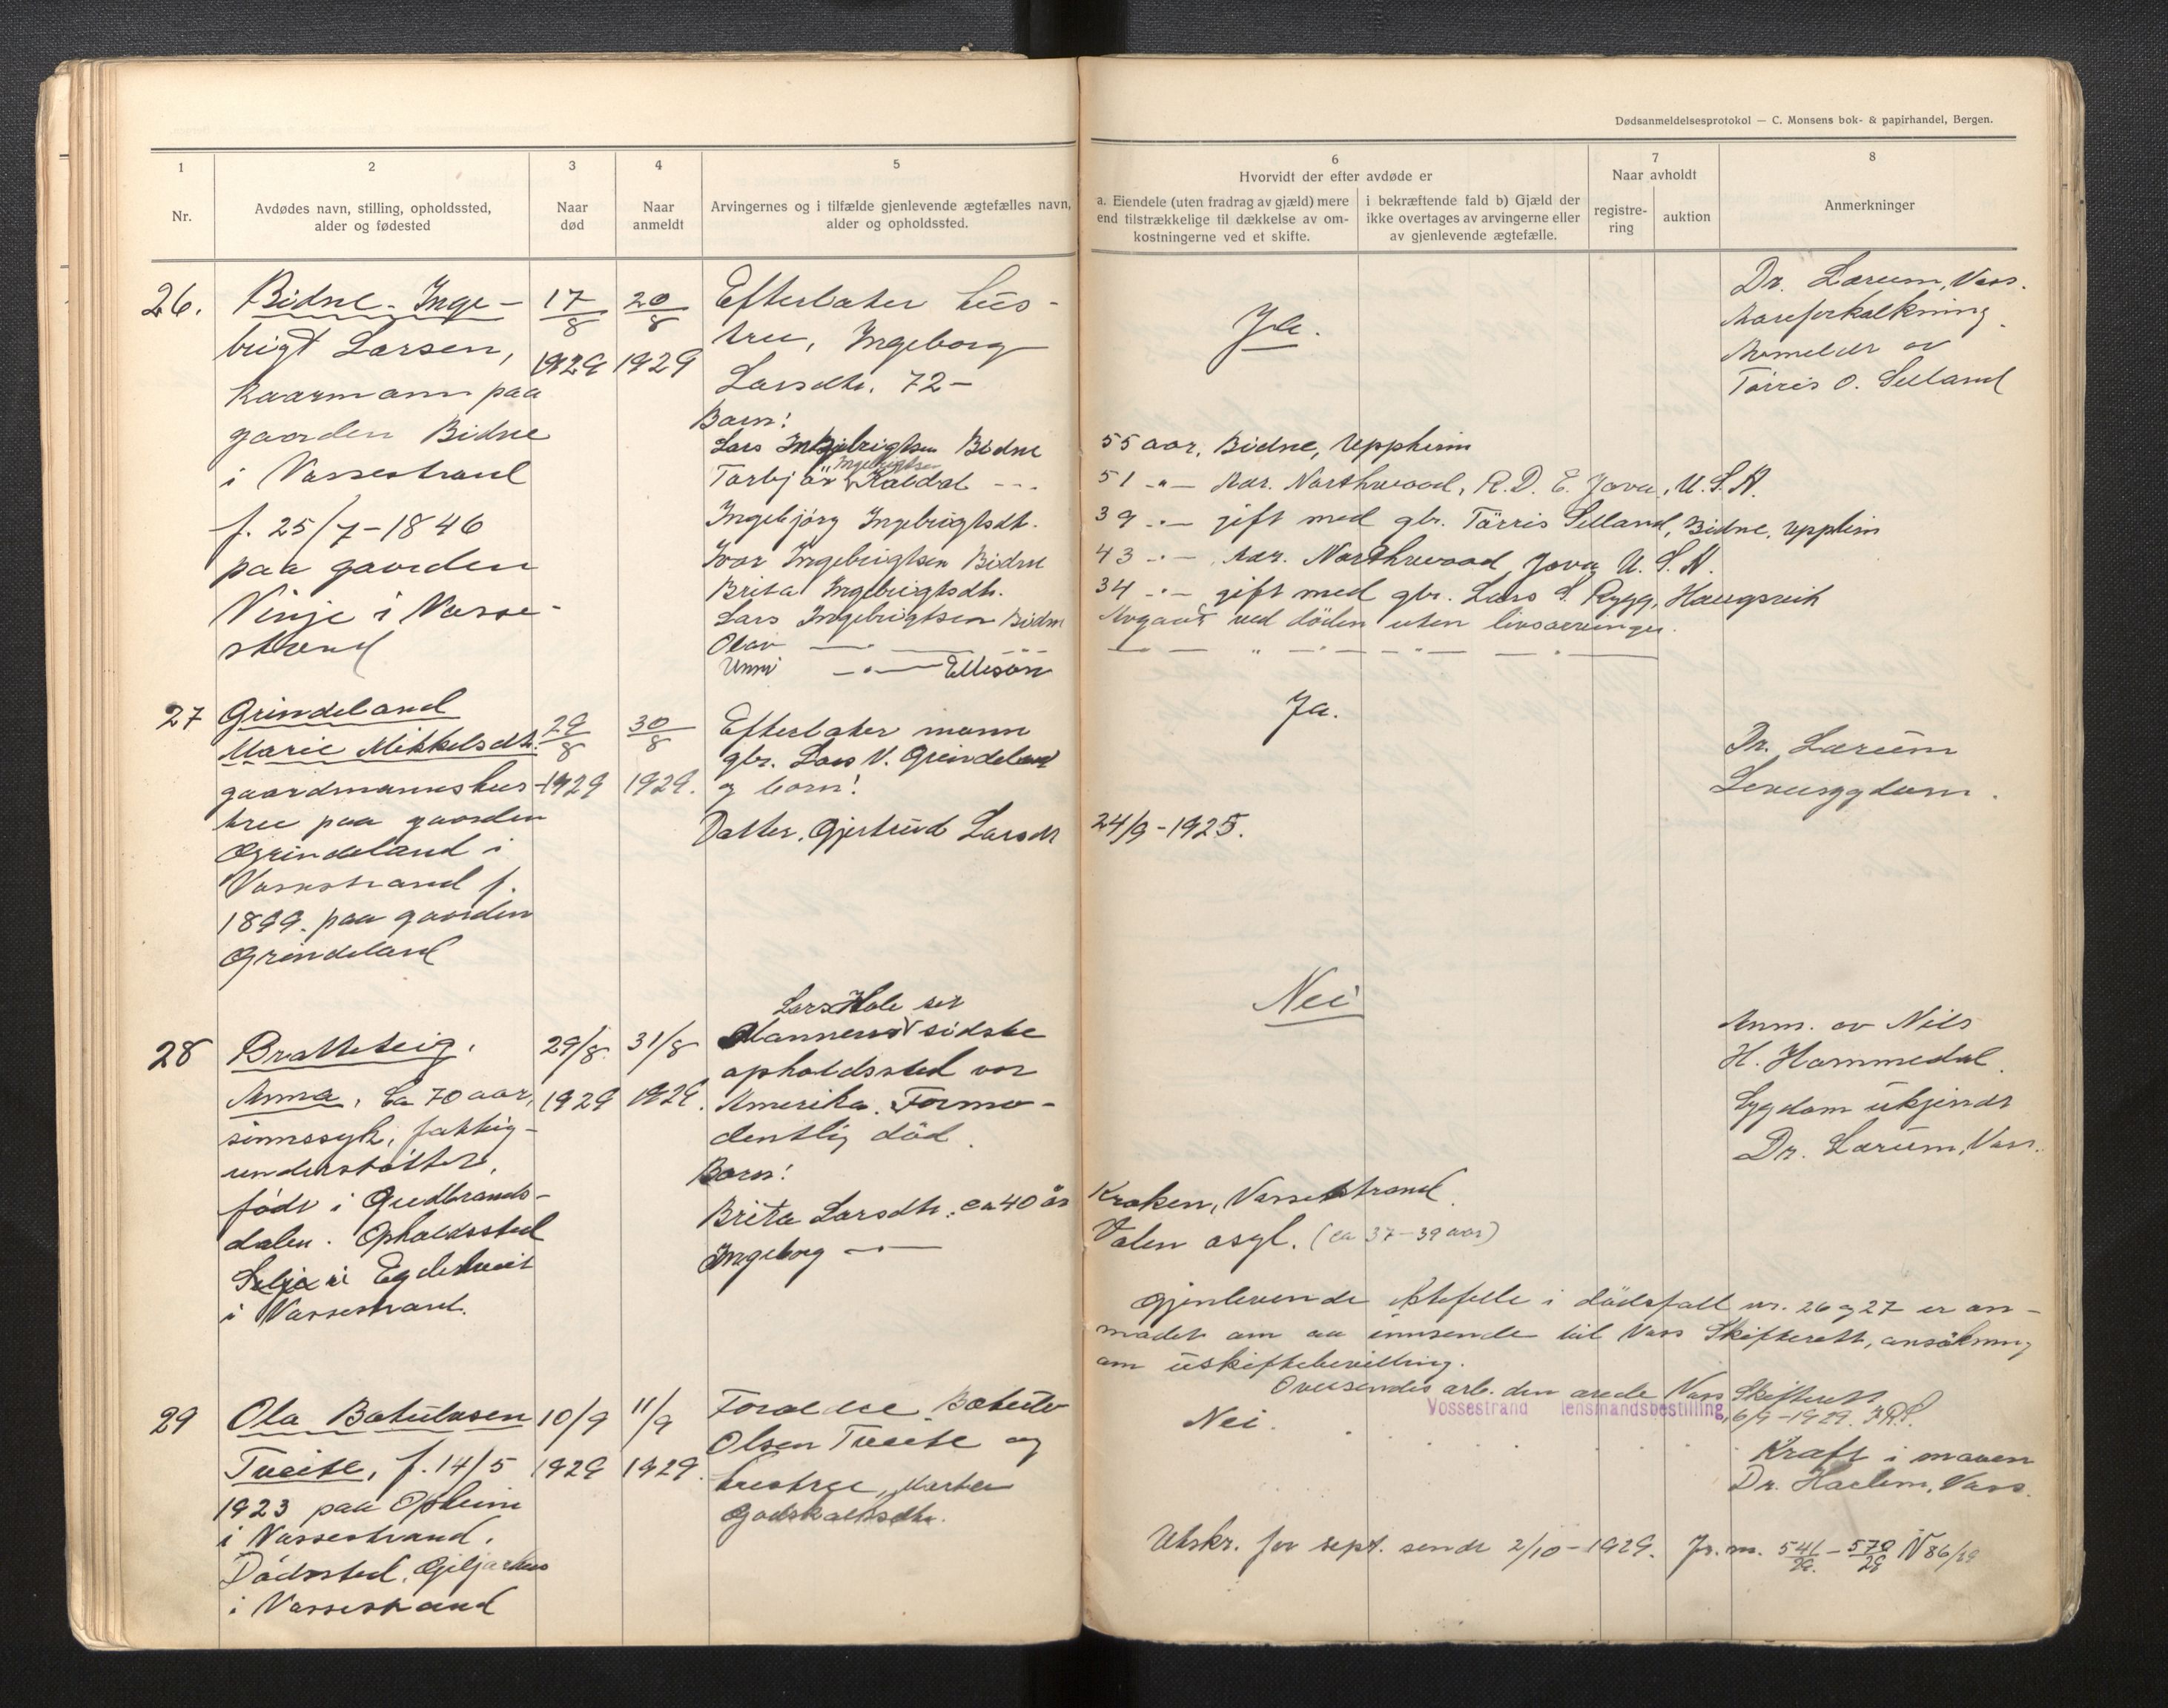 Dødsanmeldelsesprotokol — C. Monsens bok- & papirhandel, Bergen.
1
2
3
4
5
6
7
8
Nr.
Avdødes navn, stilling, opholdssted,
alder og fødested
Naar
død
Naar
anmeldt
Arvingernes og i tilfælde gjenlevende ægtefælles navn,
alder og opholdssted.
Hvorvidt der efter avdøde er
a. Eiendele (uten fradrag av gjæld) mere
end tilstrækkelige til dækkelse av om-
kostningerne ved et skifte.
i bekræftende fald b) Gjæld der
ikke overtages av arvingerne eller
av gjenlevende ægtefælle.
Naar avholdt
registre-
ring
auktion
Anmerkninger
26.
Bidne. Inge-
brigt Larsen,
kaarmann paa
gaarden Bidne
i Vossestrand
f. 25/7-1846
paa gaarden
Vinje i Vosse-
strand
17/8
1929
20/8
1929
Efterlater hus-
tru, Ingeborg
Larsdtr. 72-
Barn:
Lars Ingebrigtsen Bidne
Torbjør Ingebrigtsen Kaldal
Ingebjørg Ingebrigtsdt.
Ivar Ingebrigtsen Bidne
Brita Ingebrigtsdtr.
Lars Ingebrigtsen Bidne
Olav
Unni Ellesøn
Ja.
55 aar, Bidne, Uppheim
51 -"- Adr. Northwood, R.D. E. Jova, U.S.A.
39 -"- gift med gbr. Tørris Selland, Bidne, Uppheim
43 -"- Adr. Northwood Jova U.S.A.
34 -"- gift med gbr. Lars S. Rygg, Haugsvik
Avgaat ved døden uten livsarvinger.
Dr. Lærum, Voss.
Aareforkalkning.
Anmeldt av
Tørris O. Selland
27
Grindeland
Marie Mikkelsdtr.
gaardmannshus-
tru paa gaarden
Grindeland i
Vossestrand f.
1899. paa gaarden
Grindeland
29/8
1929
30/8
1929.
Efterlater mann
gbr. Lars V. Grindeland
og barn:
Datter, Gjertrud Larsdt
Ja.
24/9-1925.
Dr. Lærum
Leversygdom.
28
Bratteteig.
Anna, ca 70 aar,
sinnssyk, fattig-
understøttet,
født i Gudbrands-
dalen. Opholdssted
i Vossestrand.
29/8
1929
31/8
1929.
Lars Hole
Mannens sidste
opholdssted var
Amerika. Formo-
dentlig død.
Barn:
Brita Larsdtr. ca 40 år
Ingeborg —"—
Nei
Kroken, Vossestrand
Valen asyl. (ca 37-39 aar)
Anm. av Nils
H. Hommedal.
Sygdom ukjendt
Dr. Lærum, Voss.
Gjenlevende ektefelle i dødsfall nr. 26 og 27 er an-
modet om aa innsende til Voss Skifterett, ansøkning
om uskiftebevilling.
Oversendes arb. den ærede Voss Skifterett
Vossestrand lensmandsbestilling, 6/9-1929.
29
Ola Botulvsen
Tveite, f. 14/5
1923 paa Opheim
i Vossestrand.
Dødssted, Giljarhus
i Vossestrand
10/9
1929
11/9
1929.
Foreldre Botulv
Olsen Tveite og
hustru, Marta
Godskalksdtr.
Nei.
Kræft i maven
Dr. Hærlem, Voss.
Utskr. for sept. sendt 2/10-1929. Jr. nr. 541/29 - 570/29 N 86/29